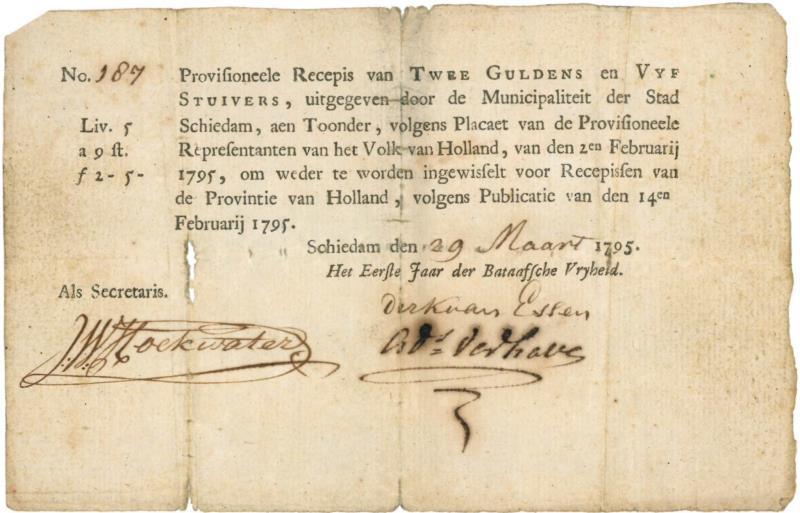 No. 187 Provisioneele Recepis van TWEE GULDENS en VYF
STUIVERS, uitgegeven door de Municipaliteit der Stad
Liv. 5 Schiedam, aen Toonder, volgens Placaet van de Provisioneele
a 9 st. Representanten van het Volk van Holland, van den 2en Februarij
f 2-5- 1795, om weder te worden ingewisselt voor Recepissen van
de Provintie van Holland, volgens Publicatie van den 14en
Februarij 1795.
Schiedam den 29 Maart 1795.
Het Eerste Jaar der Bataafsche Vryheid.
Als Secretaris.
Dirk van Essen
J.W. Hoekwater
Ads. Verhave